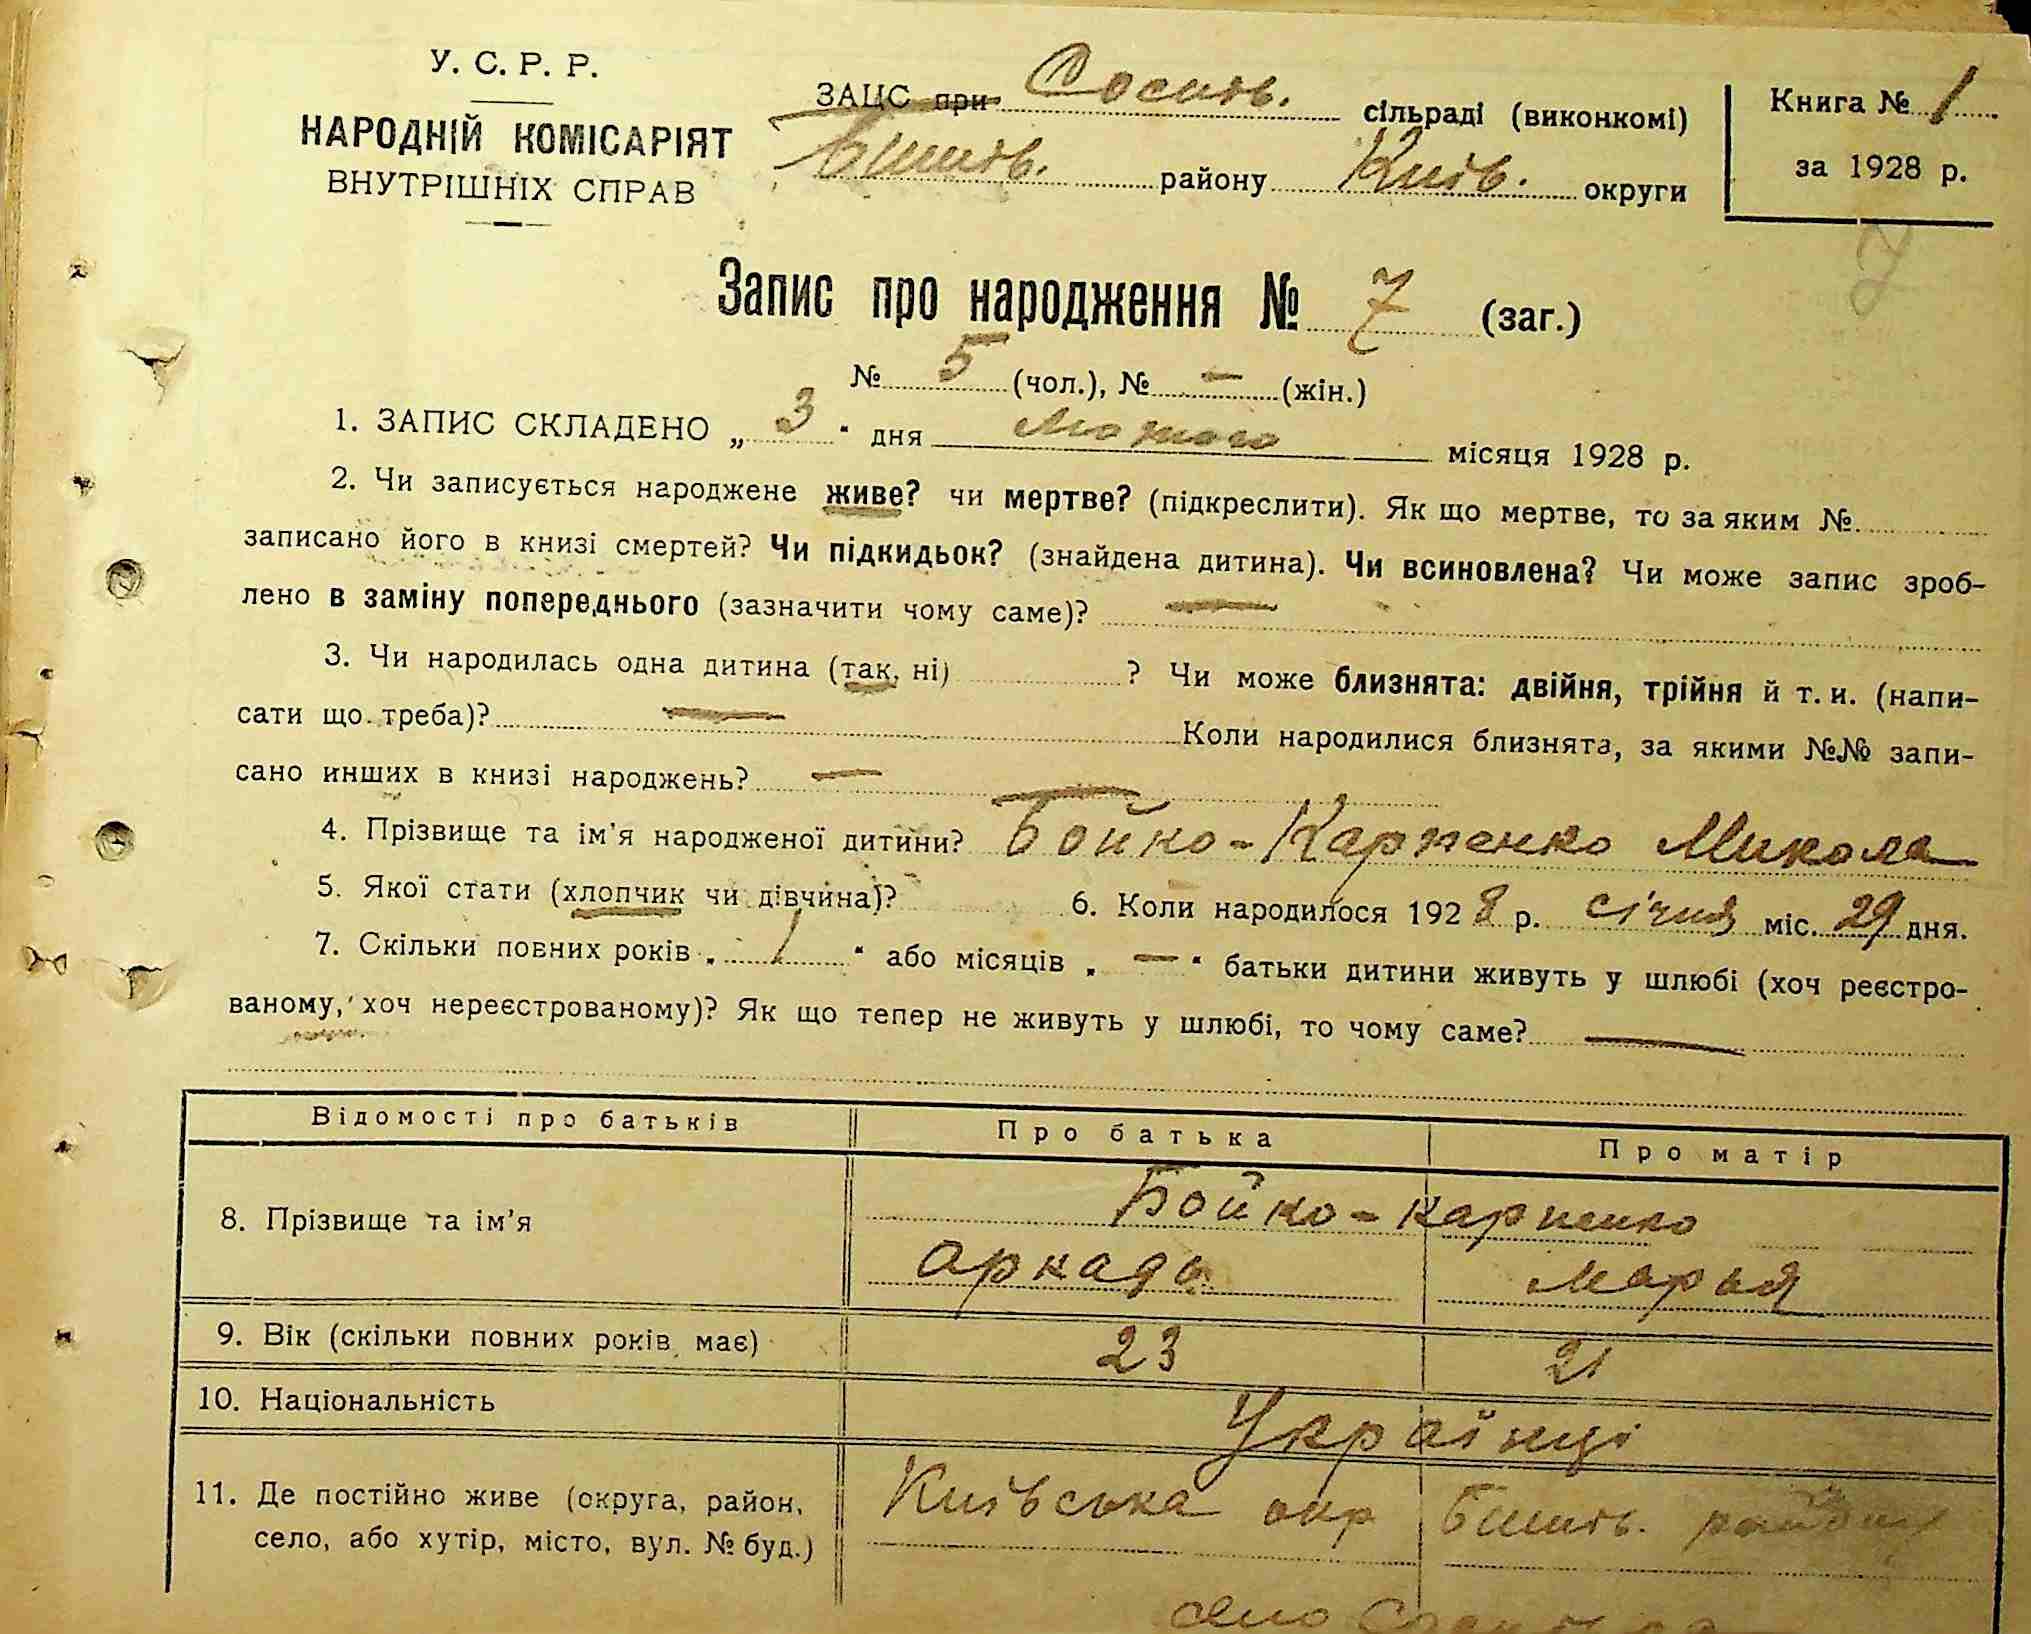 У. С. Р. Р.
НАРОДНІЙ КОМІСАРІЯТ
ВНУТРІШНІХ СПРАВ
ЗАЦС при Соснів. сільраді (виконкомі)
Бишів. району Київ. округи
Книга № 1
за 1928 р.
Запис про народження № 7 (заг.)
№ 5 (чол.), № — (жін.)
1. ЗАПИС СКЛАДЕНО „ 3 " дня Лютого місяця 1928 р.
2. Чи записується народжене живе? чи мертве? (підкреслити). Як що мертве, то за яким №
записано його в книзі смертей? Чи підкидьок? (знайдена дитина). Чи всиновлена? Чи може запис зроб-
лено в заміну попереднього (зазначити чому саме)? —
3. Чи народилась одна дитина (так, ні) ? Чи може близнята: двійня, трійня й т. и. (напи-
сати що треба)? — Коли народилися близнята, за якими №№ запи-
сано инших в книзі народжень? —
4. Прізвище та ім'я народженої дитини? Бойко-Карпенко Микола
5. Якої стати (хлопчик чи дівчина)? 6. Коли народилося 1928 р. січня міс. 29 дня.
7. Скільки повних років „ 1 " або місяців „ — " батьки дитини живуть у шлюбі (хоч реєстро-
ваному, хоч нереєстрованому)? Як що тепер не живуть у шлюбі, то чому саме? —
Відомості про батьків Про батька Про матір
8. Прізвище та ім'я Бойко-Карпенко
Аркадь Марья
9. Вік (скільки повних років має) 23 21
10. Національність Українці
11. Де постійно живе (округа, район, Київська окр Бишів. району
село, або хутір, місто, вул. № буд.)
село